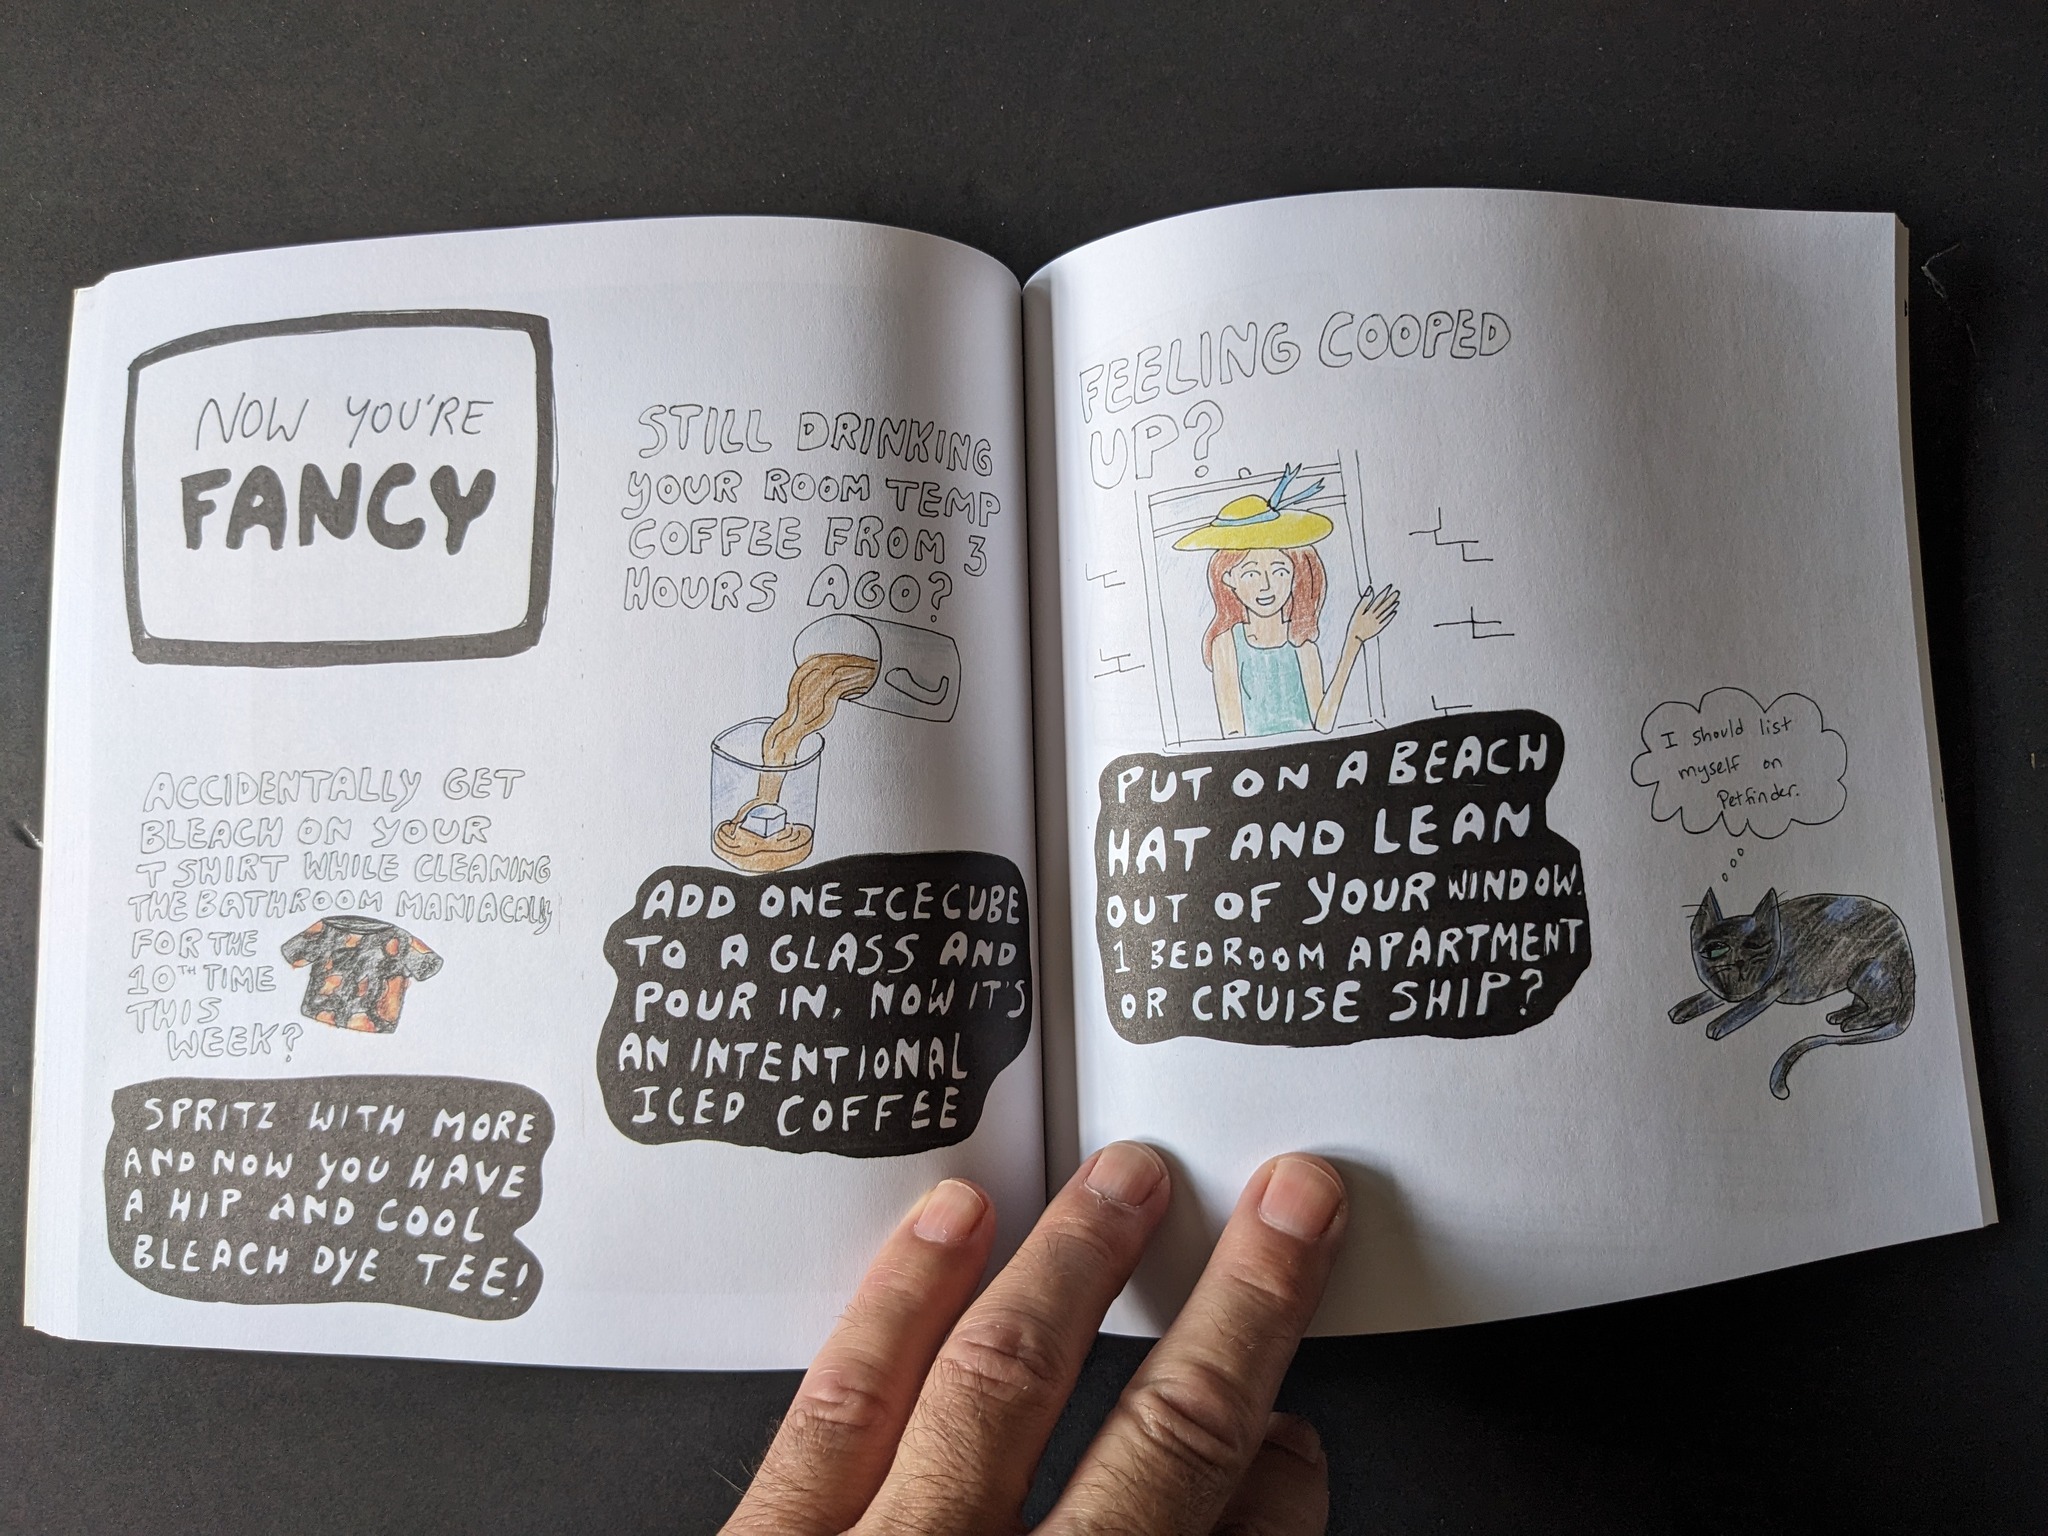 NOW YOU'RE
FANCY
ACCIDENTALLY GET
BLEACH ON YOUR
T SHIRT WHILE CLEANING
THE BATHROOM MANIACALLY
FOR THE
10TH TIME
THIS
WEEK?
SPRITZ WITH MORE
AND NOW YOU HAVE
A HIP AND COOL
BLEACH DYE TEE!
STILL DRINKING
YOUR ROOM TEMP
COFFEE FROM 3
HOURS AGO?
ADD ONE ICE CUBE
TO A GLASS AND
POUR IN, NOW IT'S
AN INTENTIONAL
ICED COFFEE
FEELING COOPED
UP?
PUT ON A BEACH
HAT AND LEAN
OUT OF YOUR WINDOW.
1 BEDROOM APARTMENT
OR CRUISE SHIP?
I should list
myself on
Petfinder.